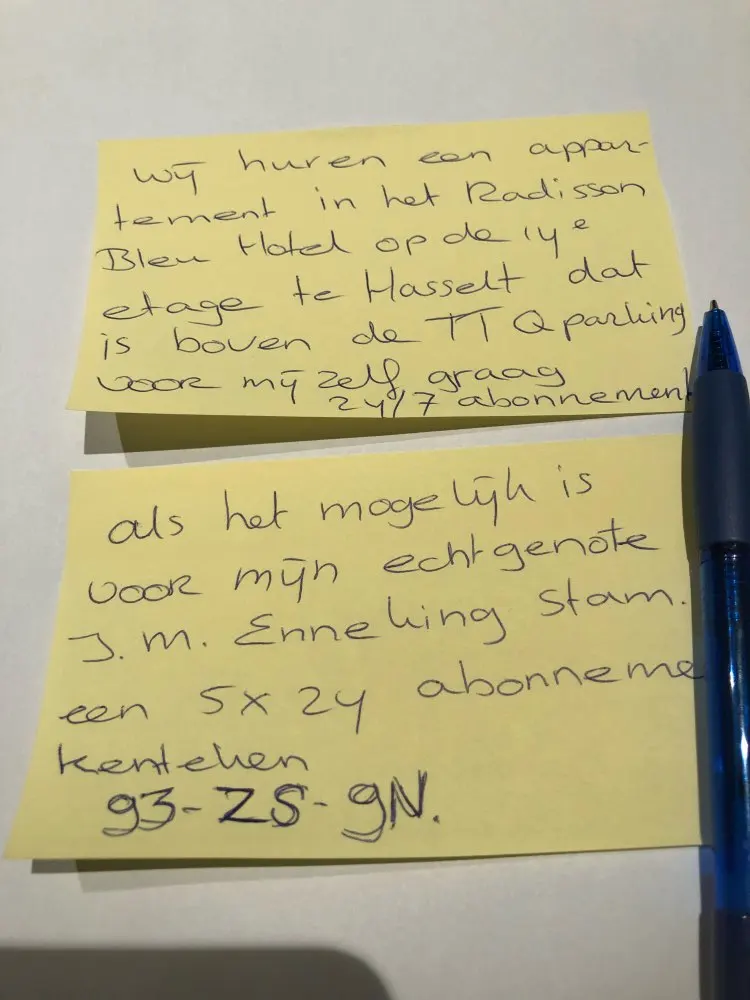 wij huren een appar-
tement in het Radisson
Bleu Hotel op de 14e
etage te Hasselt dat
is boven de TT Qparking
voor mij zelf graag
24/7 abonnement
als het mogelijk is
voor mijn echtgenote
J.M. Enneking Stam.
een 5x24 abonneme
kenteken
93-ZS-9N.